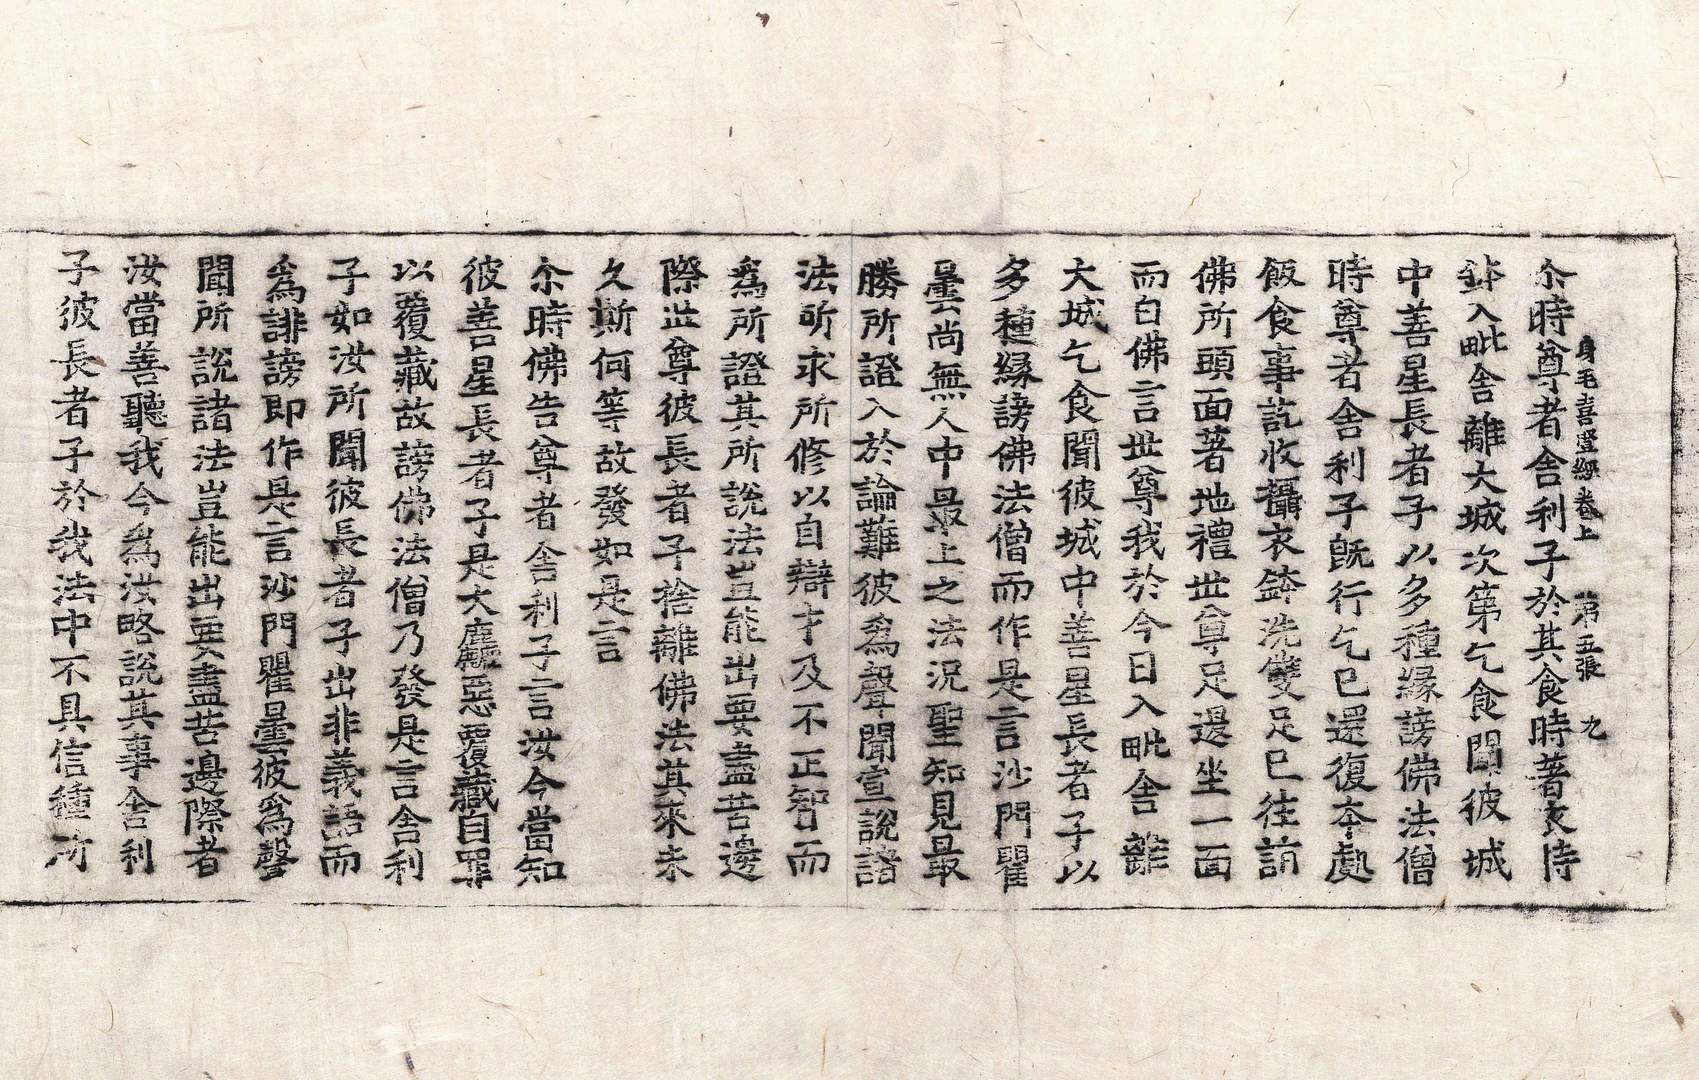 身毛喜竪經卷上 第五張 九
尒時尊者舍利子於其食時著衣持
鉢入毗舍離大城次第乞食聞彼城
中善星長者子以多種緣謗佛法僧
時尊者舍利子旣行乞已還復本處
飯食事訖收攝衣鉢洗雙足已往詣
佛所頭面著地禮世尊足退坐一面
而白佛言世尊我於今日入毗舍離
大城乞食聞彼城中善星長者子以
多種緣謗佛法僧而作是言沙門瞿
曇尚無人中最上之法況聖知見最
勝所證入於論難彼爲聲聞宣說諸
法所求所修以自辯才及不正智而
爲所證其所說法豈能出要盡苦邊
際世尊彼長者子捨離佛法其來未
久斯何等故發如是言
尒時佛告尊者舍利子言汝今當知
彼善星長者子是大麤惡覆藏自罪
以覆藏故謗佛法僧乃發是言舍利
子如汝所聞彼長者子出非義語而
爲誹謗即作是言沙門瞿曇彼爲聲
聞所說諸法豈能出要盡苦邊際者
汝當善聽我今爲汝略說其事舍利
子彼長者子於我法中不具信種所